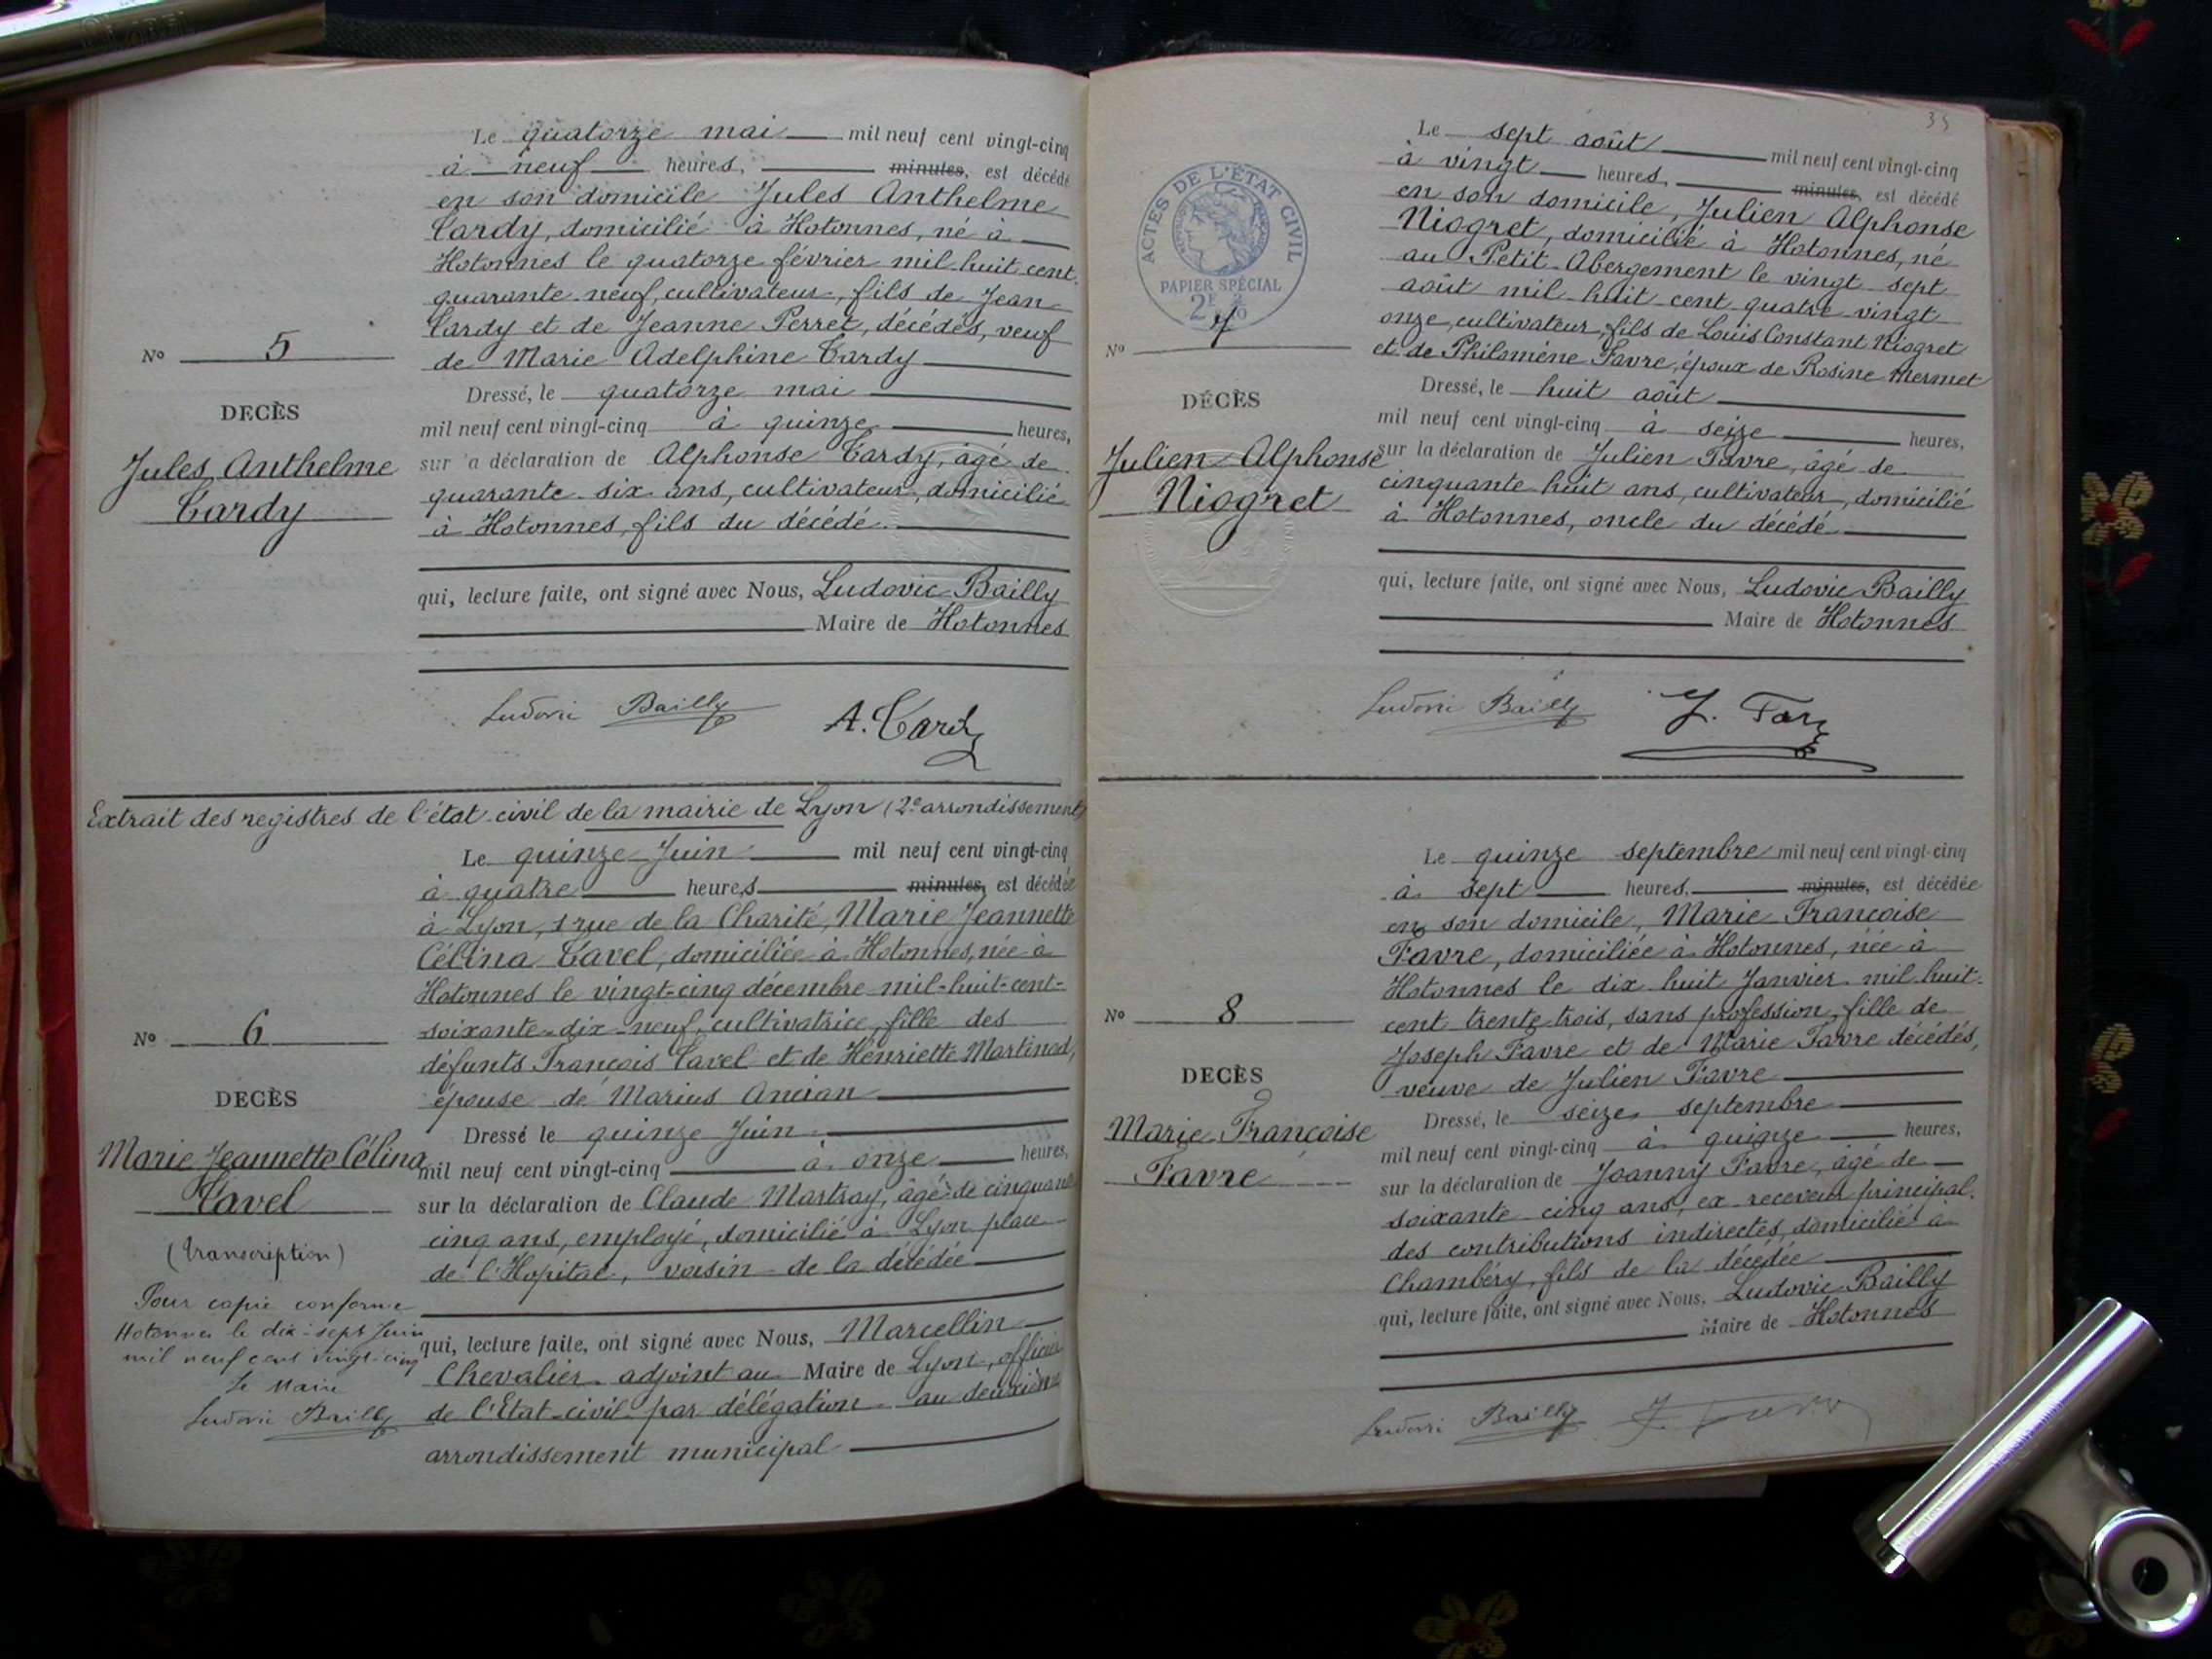 Le quatorze mai mil neuf cent vingt-cinq
à neuf heures, minutes, est décédé
en son domicile Jules Anthelme
Tardy, domicilié à Hotonnes, né à
Hotonnes le quatorze février mil huit cent
quarante neuf, cultivateur, fils de Jean
Tardy et de Jeanne Perret, décédés, veuf
de Marie Adelphine Tardy
Nº 5
DÉCÈS
Jules Anthelme
Tardy
Dressé, le quatorze mai
mil neuf cent vingt-cinq à quinze heures,
sur a déclaration de Alphonse Tardy, âgé de
quarante six ans, cultivateur, domicilié
à Hotonnes, fils du décédé
qui, lecture faite, ont signé avec Nous, Ludovic Bailly
Maire de Hotonnes
Ludovic Bailly A. Tardy
Extrait des registres de l'état civil de la mairie de Lyon (2e arrondissement)
Le quinze Juin mil neuf cent vingt-cinq
à quatre heures minutes, est décédée
à Lyon, 1 rue de la Charité, Marie Jeannette
Célina Tavel, domiciliée à Hotonnes, née à
Hotonnes le vingt-cinq décembre mil-huit-cent-
soixante-dix-neuf, cultivatrice, fille des
défunts François Tavel et de Henriette Martinod,
épouse de Marius Ancian
Nº 6
DECÈS
Marie Jeannette Célina
Tavel
(transcription)
Pour copie conforme
Hotonnes le dix-sept Juin
mil neuf cent vingt-cinq
Le Maire
Ludovic Bailly
Dressé le quinze Juin
mil neuf cent vingt-cinq à onze heures,
sur la déclaration de Claude Martray, âgé de cinquante
cinq ans, employé, domicilié à Lyon place
de l'Hopital, voisin de la décédée
qui, lecture faite, ont signé avec Nous, Marcellin
Chevalier adjoint au Maire de Lyon, officier
de l'Etat-civil par délégation au deuxième
arrondissement municipal
35
ACTES DE L'ÉTAT CIVIL
PAPIER SPÉCIAL
Le sept août mil neuf cent vingt-cinq
à vingt heures, minutes, est décédé
en son domicile, Julien Alphonse
Niogret, domicilié à Hotonnes, né
au Petit Abergement le vingt sept
août mil huit cent quatre vingt
onze, cultivateur, fils de Louis Constant Niogret
et de Philomène Favre, époux de Rosine Mermet
Nº 7
DÉCÈS
Julien Alphonse
Niogret
Dressé, le huit août
mil neuf cent vingt-cinq à seize heures,
sur la déclaration de Julien Favre, âgé de
cinquante huit ans, cultivateur, domicilié
à Hotonnes, oncle du décédé
qui, lecture faite, ont signé avec Nous, Ludovic Bailly
Maire de Hotonnes
Ludovic Bailly J. Favre
Le quinze septembre mil neuf cent vingt-cinq
à sept heures, minutes, est décédée
en son domicile, Marie Françoise
Favre, domiciliée à Hotonnes, née à
Hotonnes le dix huit Janvier mil huit
cent trente trois, sans profession, fille de
Joseph Favre et de Marie Favre décédés,
veuve de Julien Favre
Nº 8
DECÈS
Marie Françoise
Favre
Dressé, le seize septembre
mil neuf cent vingt-cinq à quinze heures,
sur la déclaration de Joanny Favre, âgé de
soixante cinq ans, ex receveur principal
des contributions indirectes, domicilié à
Chambéry, fils de la décédée
qui, lecture faite, ont signé avec Nous, Ludovic Bailly
Maire de Hotonnes
Ludovic Bailly J. Favre